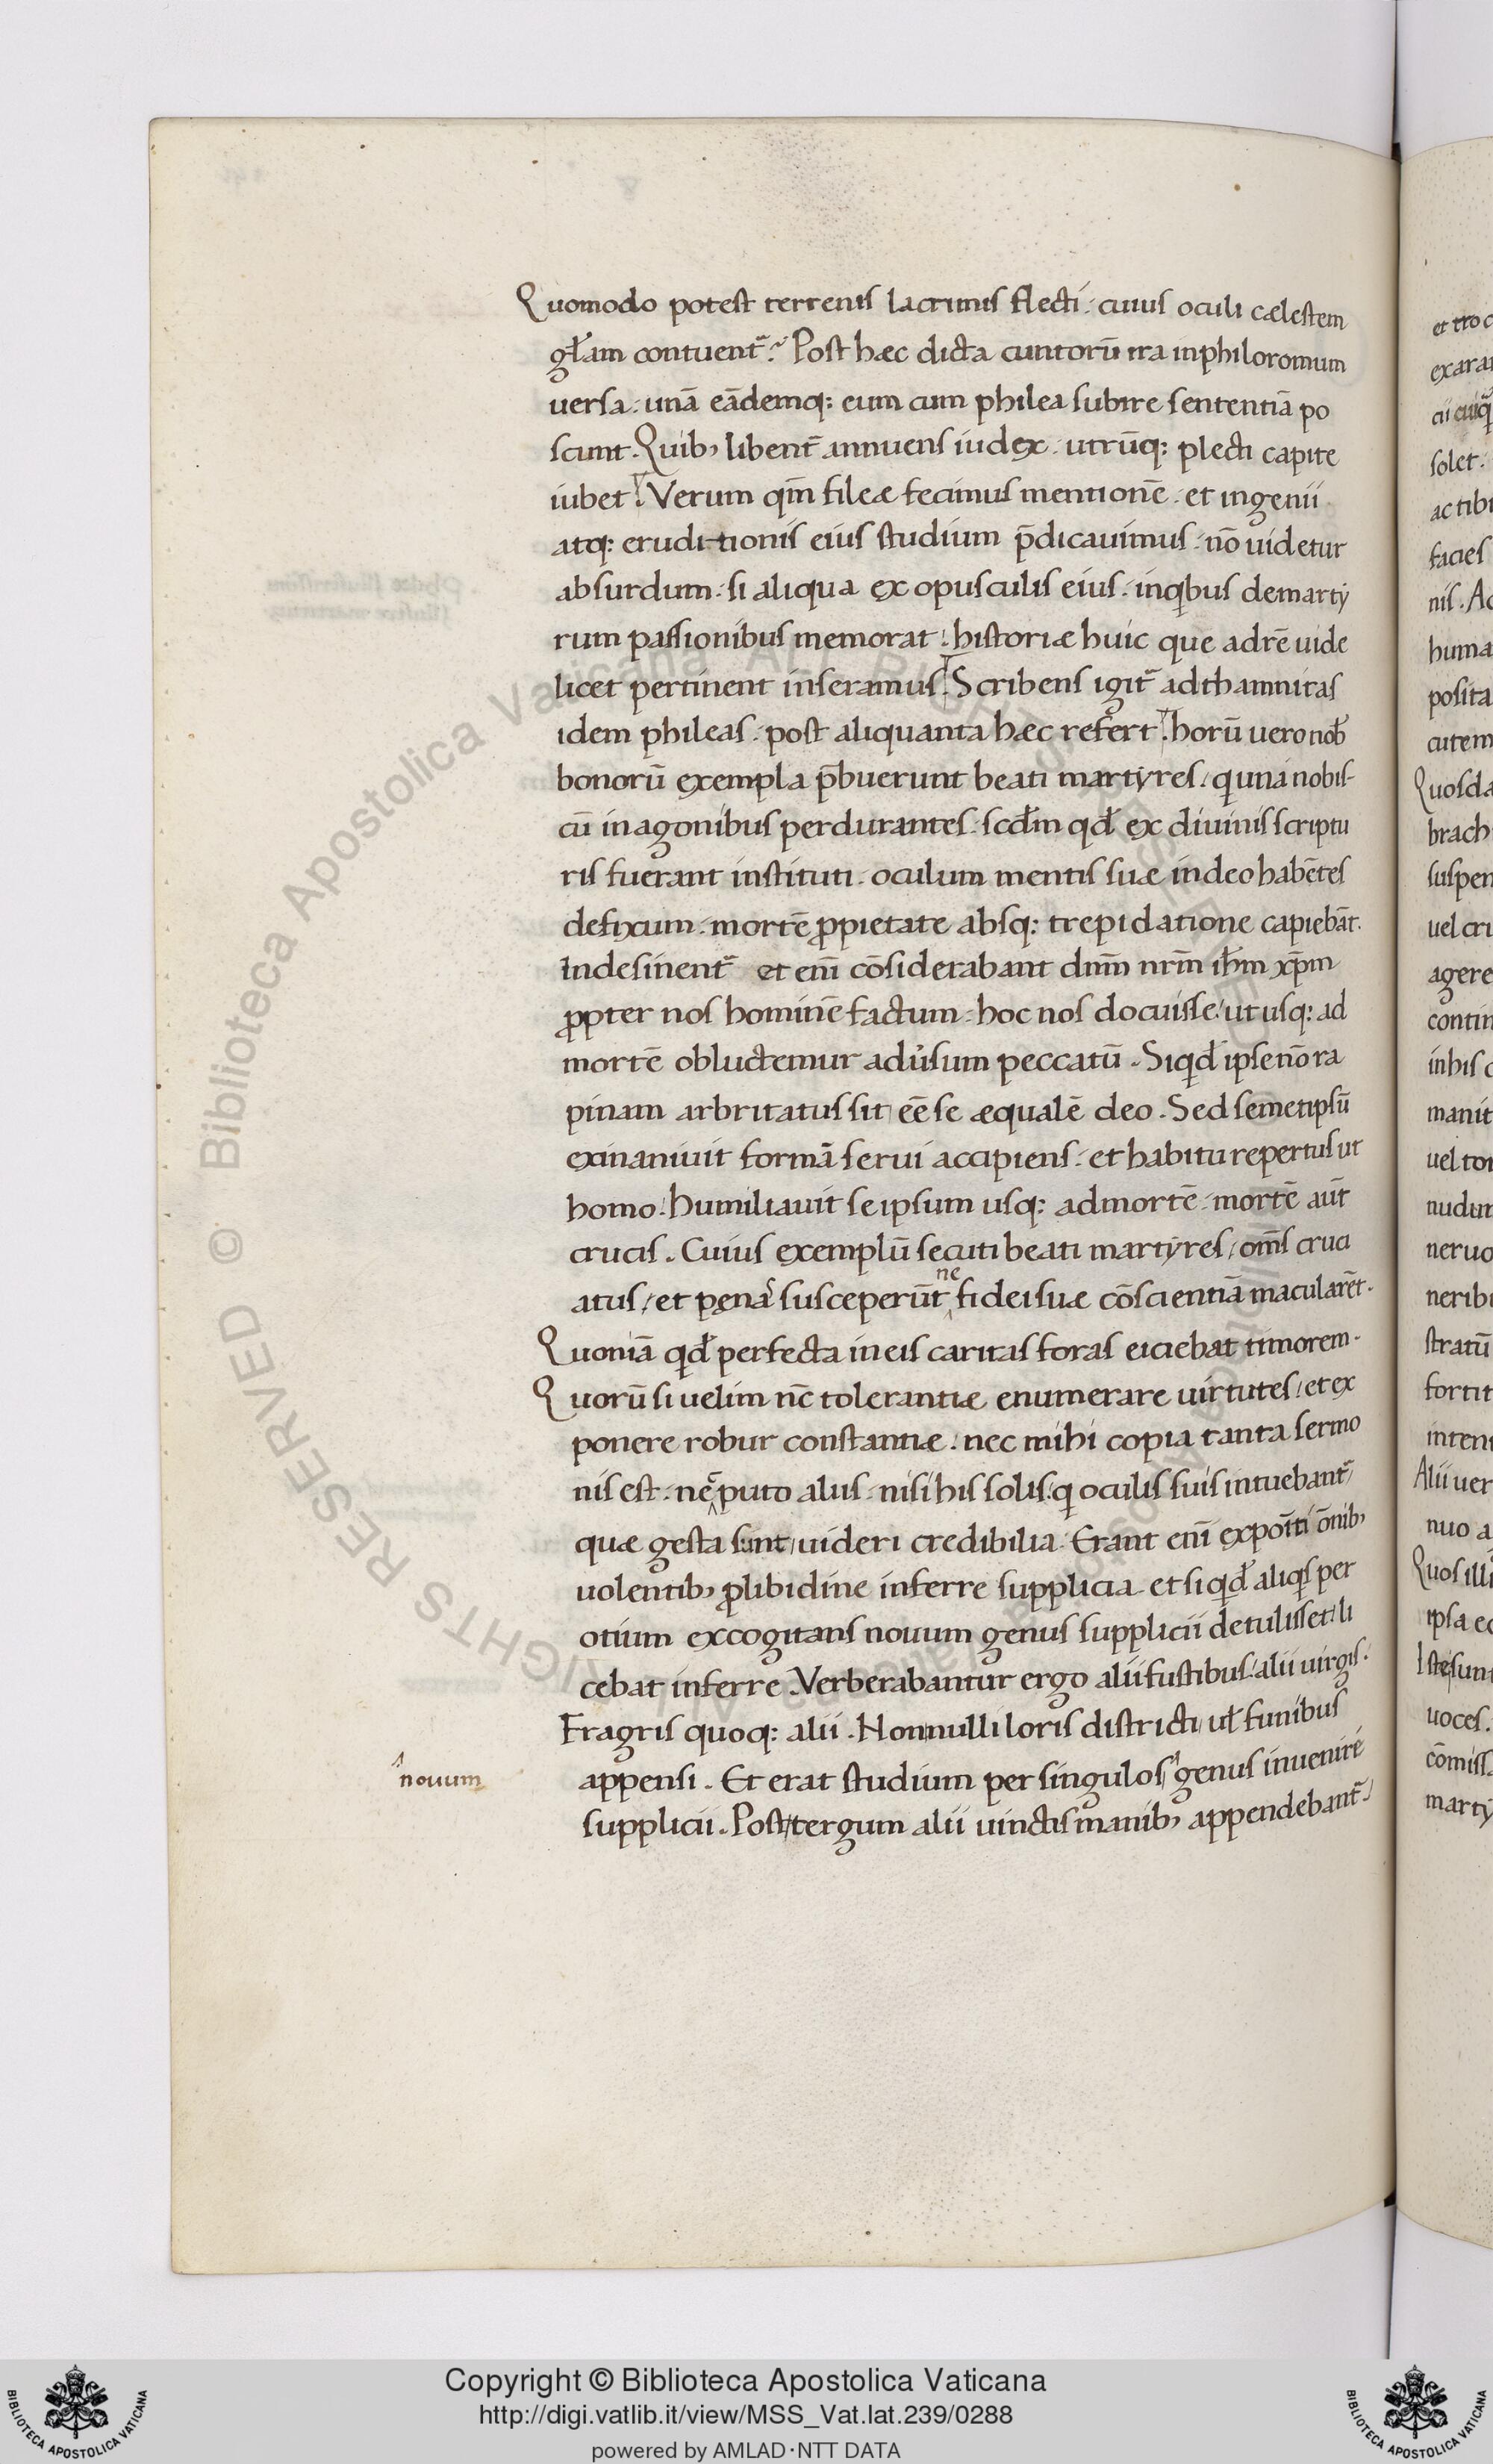 Quomodo potest terrenis lacrimis flecti. cuius oculi cælestem
gl̄am contuent᷑. Post hæc dicta cuntorū ira inphiloromum
uersa. unā eādemq: eum cum philea subire sententiā po
scunt. Quib; libent̄ annuens iudex. utrūq: plecti capite
iubet. Verum qm̄ fileæ fecimus mentionē. et ingenii
atq: eruditionis eius studium p̄dicauimus. nō uidetur
absurdum. si aliqua ex opusculis eius. inqibus demarty
rum passionibus memorat. historiæ huic que adrē uide
licet pertinent inseramus. Scribens igit᷑ adthamnitas
idem phileas. post aliquanta hæc refert. horū uero nob̄
bonorū exempla p̄buerunt beati martyres. qi una nobis-
cū inagonibus perdurantes. scd̄m qd̄ ex diuinis scriptu
ris fuerant instituti. oculum mentis suæ indeo habētes
defixum. mortē ꝓpietate absq: trepidatione capiebāt.
Indesinent᷑ et enī cōsiderabant dnm̄ nrm̄ ihm̄ xp̄m
ꝓpter nos hominē factum. hoc nos docuisse. ut usq: ad
mortē obluctemur adu̓sum peccatū. Siqid̄ ipse nō ra
pinam arbritatus sit eē se æqualē deo. Sed semetipsū
exinaniuit formā serui accipiens. et habitu repertus ut
homo. humiliauit se ipsum usq: admortē. mortē aūt
crucis. Cuius exemplū secuti beati martyres, om̄s cruci
atus, et penas susceperūt ne fidei suæ cōscientiā macularēt.
Quoniā qid̄ perfecta in eis caritas foras eiciebat timorem.
Quorū si uelim nc̄ tolerantiæ enumerare uirtutes, et ex
ponere robur constantiæ. nec mihi copia tanta sermo
nis est. ne puto aliis. nisi his solis qi oculis suis intuebant᷑
quæ gesta sunt, uideri credibilia. Erant enī expoīti ōnib;
uolentib; ꝓlibidine inferre supplicia. et si qid̄ aliqis per
otium excogitans nouum genus supplicii detulisset, li
cebat inferre. Verberabantur ergo alii fustibus. alii uirgis.
Fragris quoq: alii. Nonnulli loris districti, ul̄ funibus
appensi. Et erat studium per singulos genus inuenire
novum
supplicii. Post tergum alii uinctis manib; appendebant᷑.
et tro c
exarar
cii cuiq
solet.
ac tibi
facies
nis. Ac
huma
posita
cutem
Quosda
brach
suspen
uel cri
agere
contin
in his c
manit
uel tor
nudat
neruo
neribu
stratū
fortit
inten
Alii uer
nuo a
Quos illi
ipsa ec
Iste sunt
uoces.
cōmiss
marty
Biblioteca Apostolica Vaticana ALL RIGHTS RESERVED ©
Copyright © Biblioteca Apostolica Vaticana
http://digi.vatlib.it/view/MSS_Vat.lat.239/0288
powered by AMLAD·NTT DATA
BIBLIOTECA APOSTOLICA VATICANA
BIBLIOTECA APOSTOLICA VATICANA